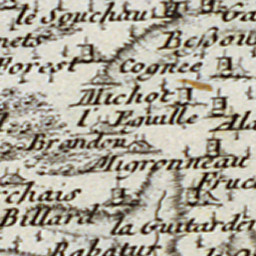 le Souchau
nets
Forest
Cognée
Michot
l'Eguille
Brandon
Migronneau
chais
Billard
la Guitarden
Rabatur